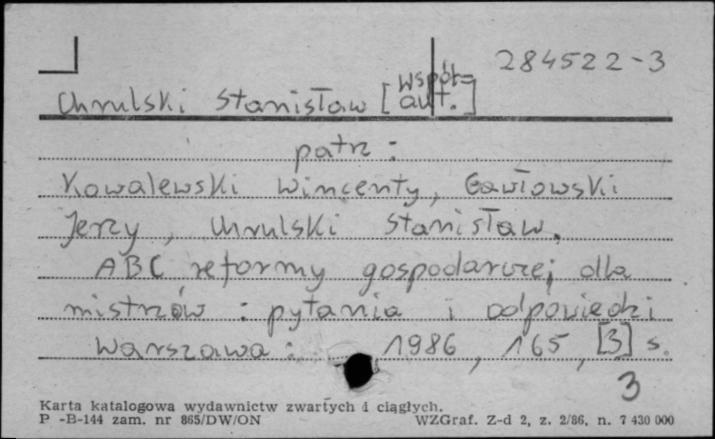 284522-3
Chrulski Stanisław [współ-
aut.]
patrz:
Kowalewski Wincenty, Gawłowski
Jerzy, Chrulski Stanisław.
ABC reformy gospodarczej dla
mistrzów : pytania i odpowiedzi
Warszawa : 1986, 165, [3] s.
3
Karta katalogowa wydawnictw zwartych i ciągłych.
P -B-144 zam. nr 865/DW/ON WZGraf. Z-d 2, z. 2/86, n. 7 430 000